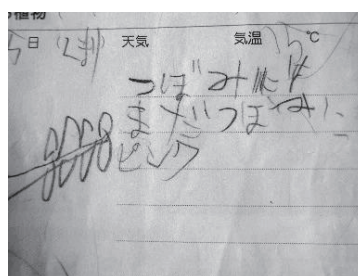 植物
日 天気 気温 15℃
つぼみは
まだつぼみに
ピンク